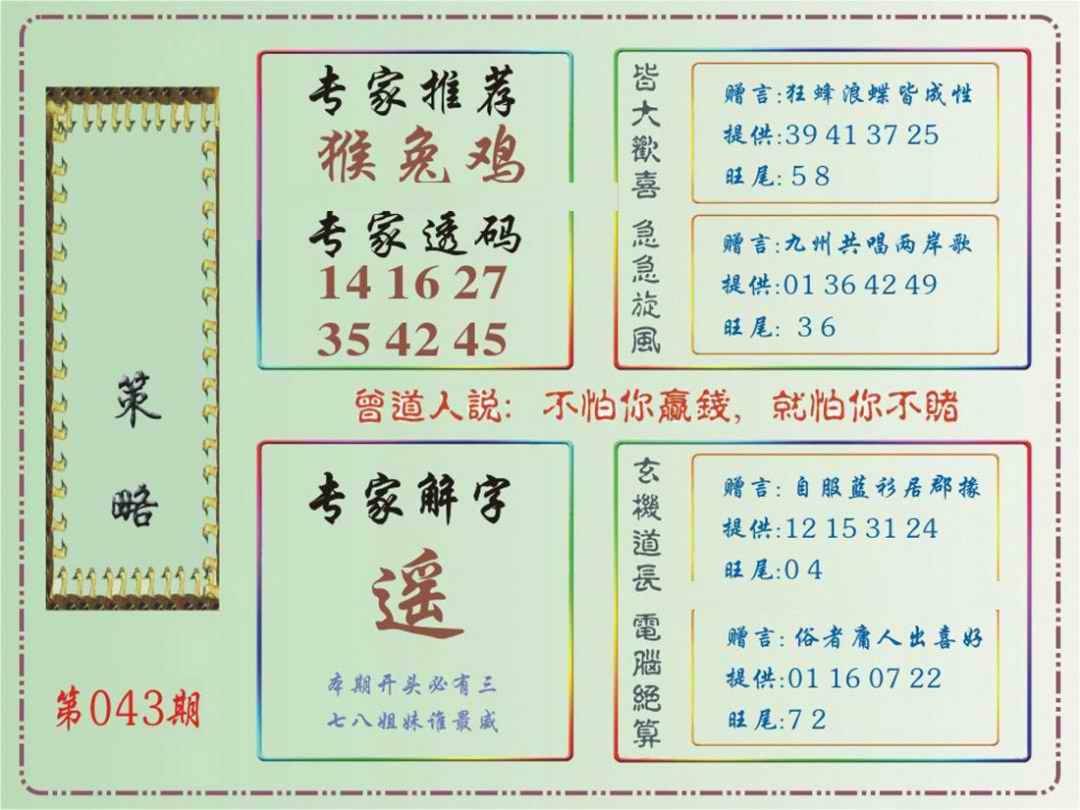 策略
第043期
专家推荐
猴兔鸡
专家透码
14 16 27
35 42 45
皆大歡喜
赠言:狂蜂浪蝶皆成性
提供:39 41 37 25
旺尾: 5 8
急急旋風
赠言:九州共唱两岸歌
提供:01 36 42 49
旺尾: 3 6
曾道人説: 不怕你赢錢, 就怕你不賭
专家解字
遥
本期开头必有三
七八姐妹谁最威
玄機道長
赠言: 自服蓝衫居郡掾
提供:12 15 31 24
旺尾:0 4
電腦絕算
赠言: 俗者庸人出喜好
提供:01 16 07 22
旺尾:7 2